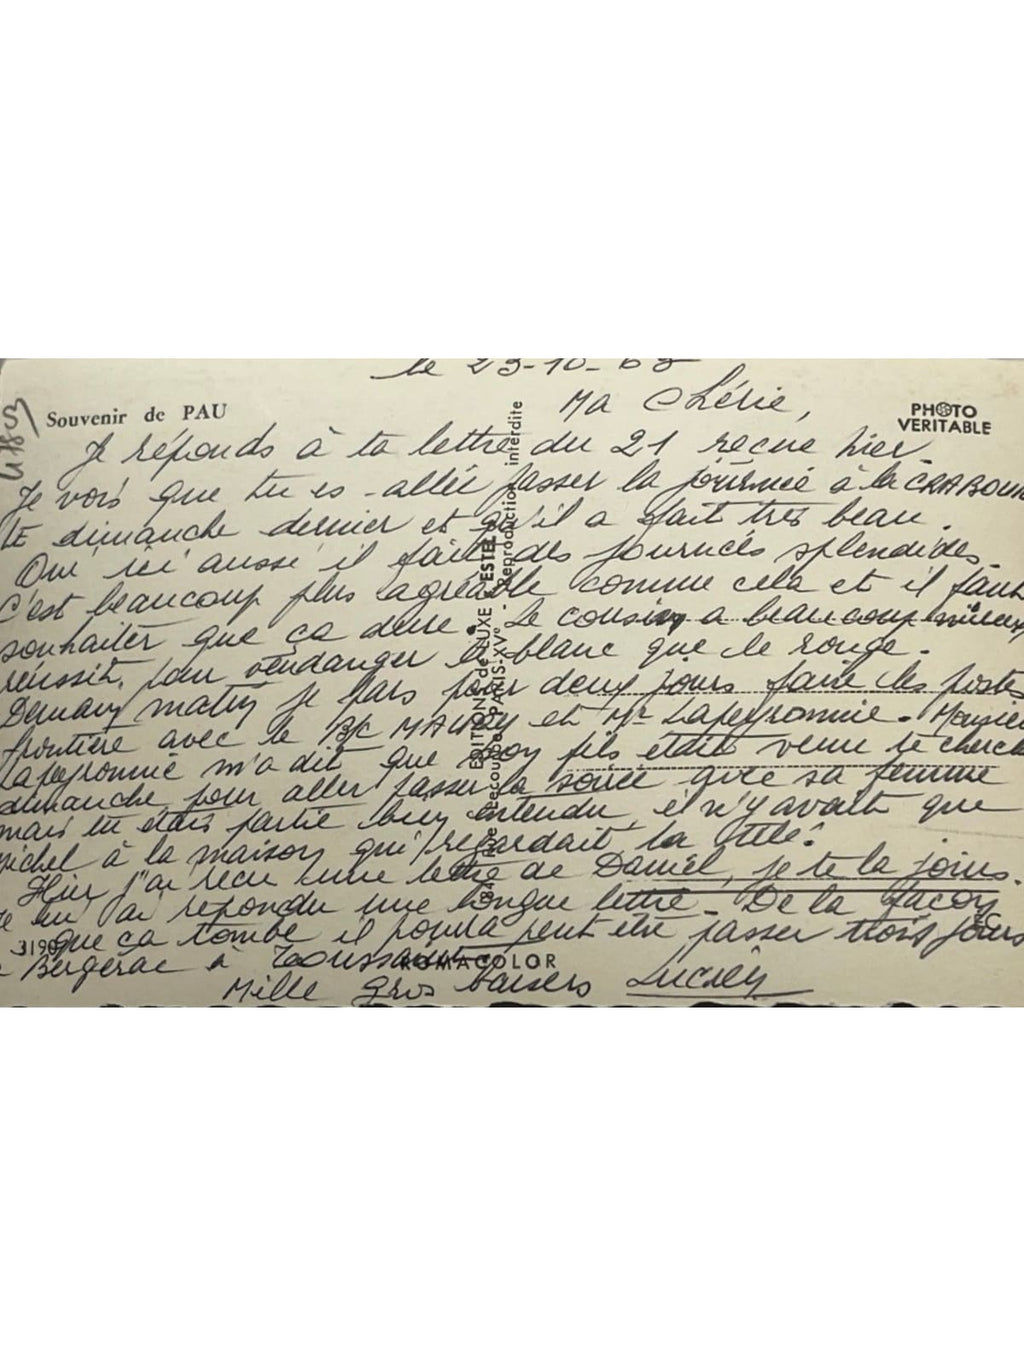 le 23-10-68
Souvenir de PAU
Ma Chérie,
PHOTO
VERITABLE
Je réponds à ta lettre du 21 reçue hier.
Je vois que tu es allée passer la journée à la CRABOUI
LE dimanche dernier et qu'il a fait très beau.
Oui ici aussi il fait des journées splendides
C'est beaucoup plus agréable comme cela et il faut
souhaiter que ça dure. Le cousin a beaucoup mieux
réussit, pour vendanger le blanc que le rouge.
Demain matin je pars pour deux jours faire les postes
frontière avec le et Mr Lapeyronnie. Monsieu
Lapeyronnie m'a dit que son fils était venu te cherch
dimanche pour aller passer la soirée avec sa femme
mais tu étais partie bien entendu, il n'y avait que
Michel à la maison qui regardait la télé.
Hier j'ai reçu une lettre de Daniel, je te la joins.
Je lui ai répondu une longue lettre. De la façon
que ça tombe il pourra peut être passer trois jours
à Bergerac à Toussaint
Mille gros baisers Lucien
3190
ROMACOLOR
EDITIONS de LUXE "ESTEL"
PARIS-XVe - Reproduction interdite